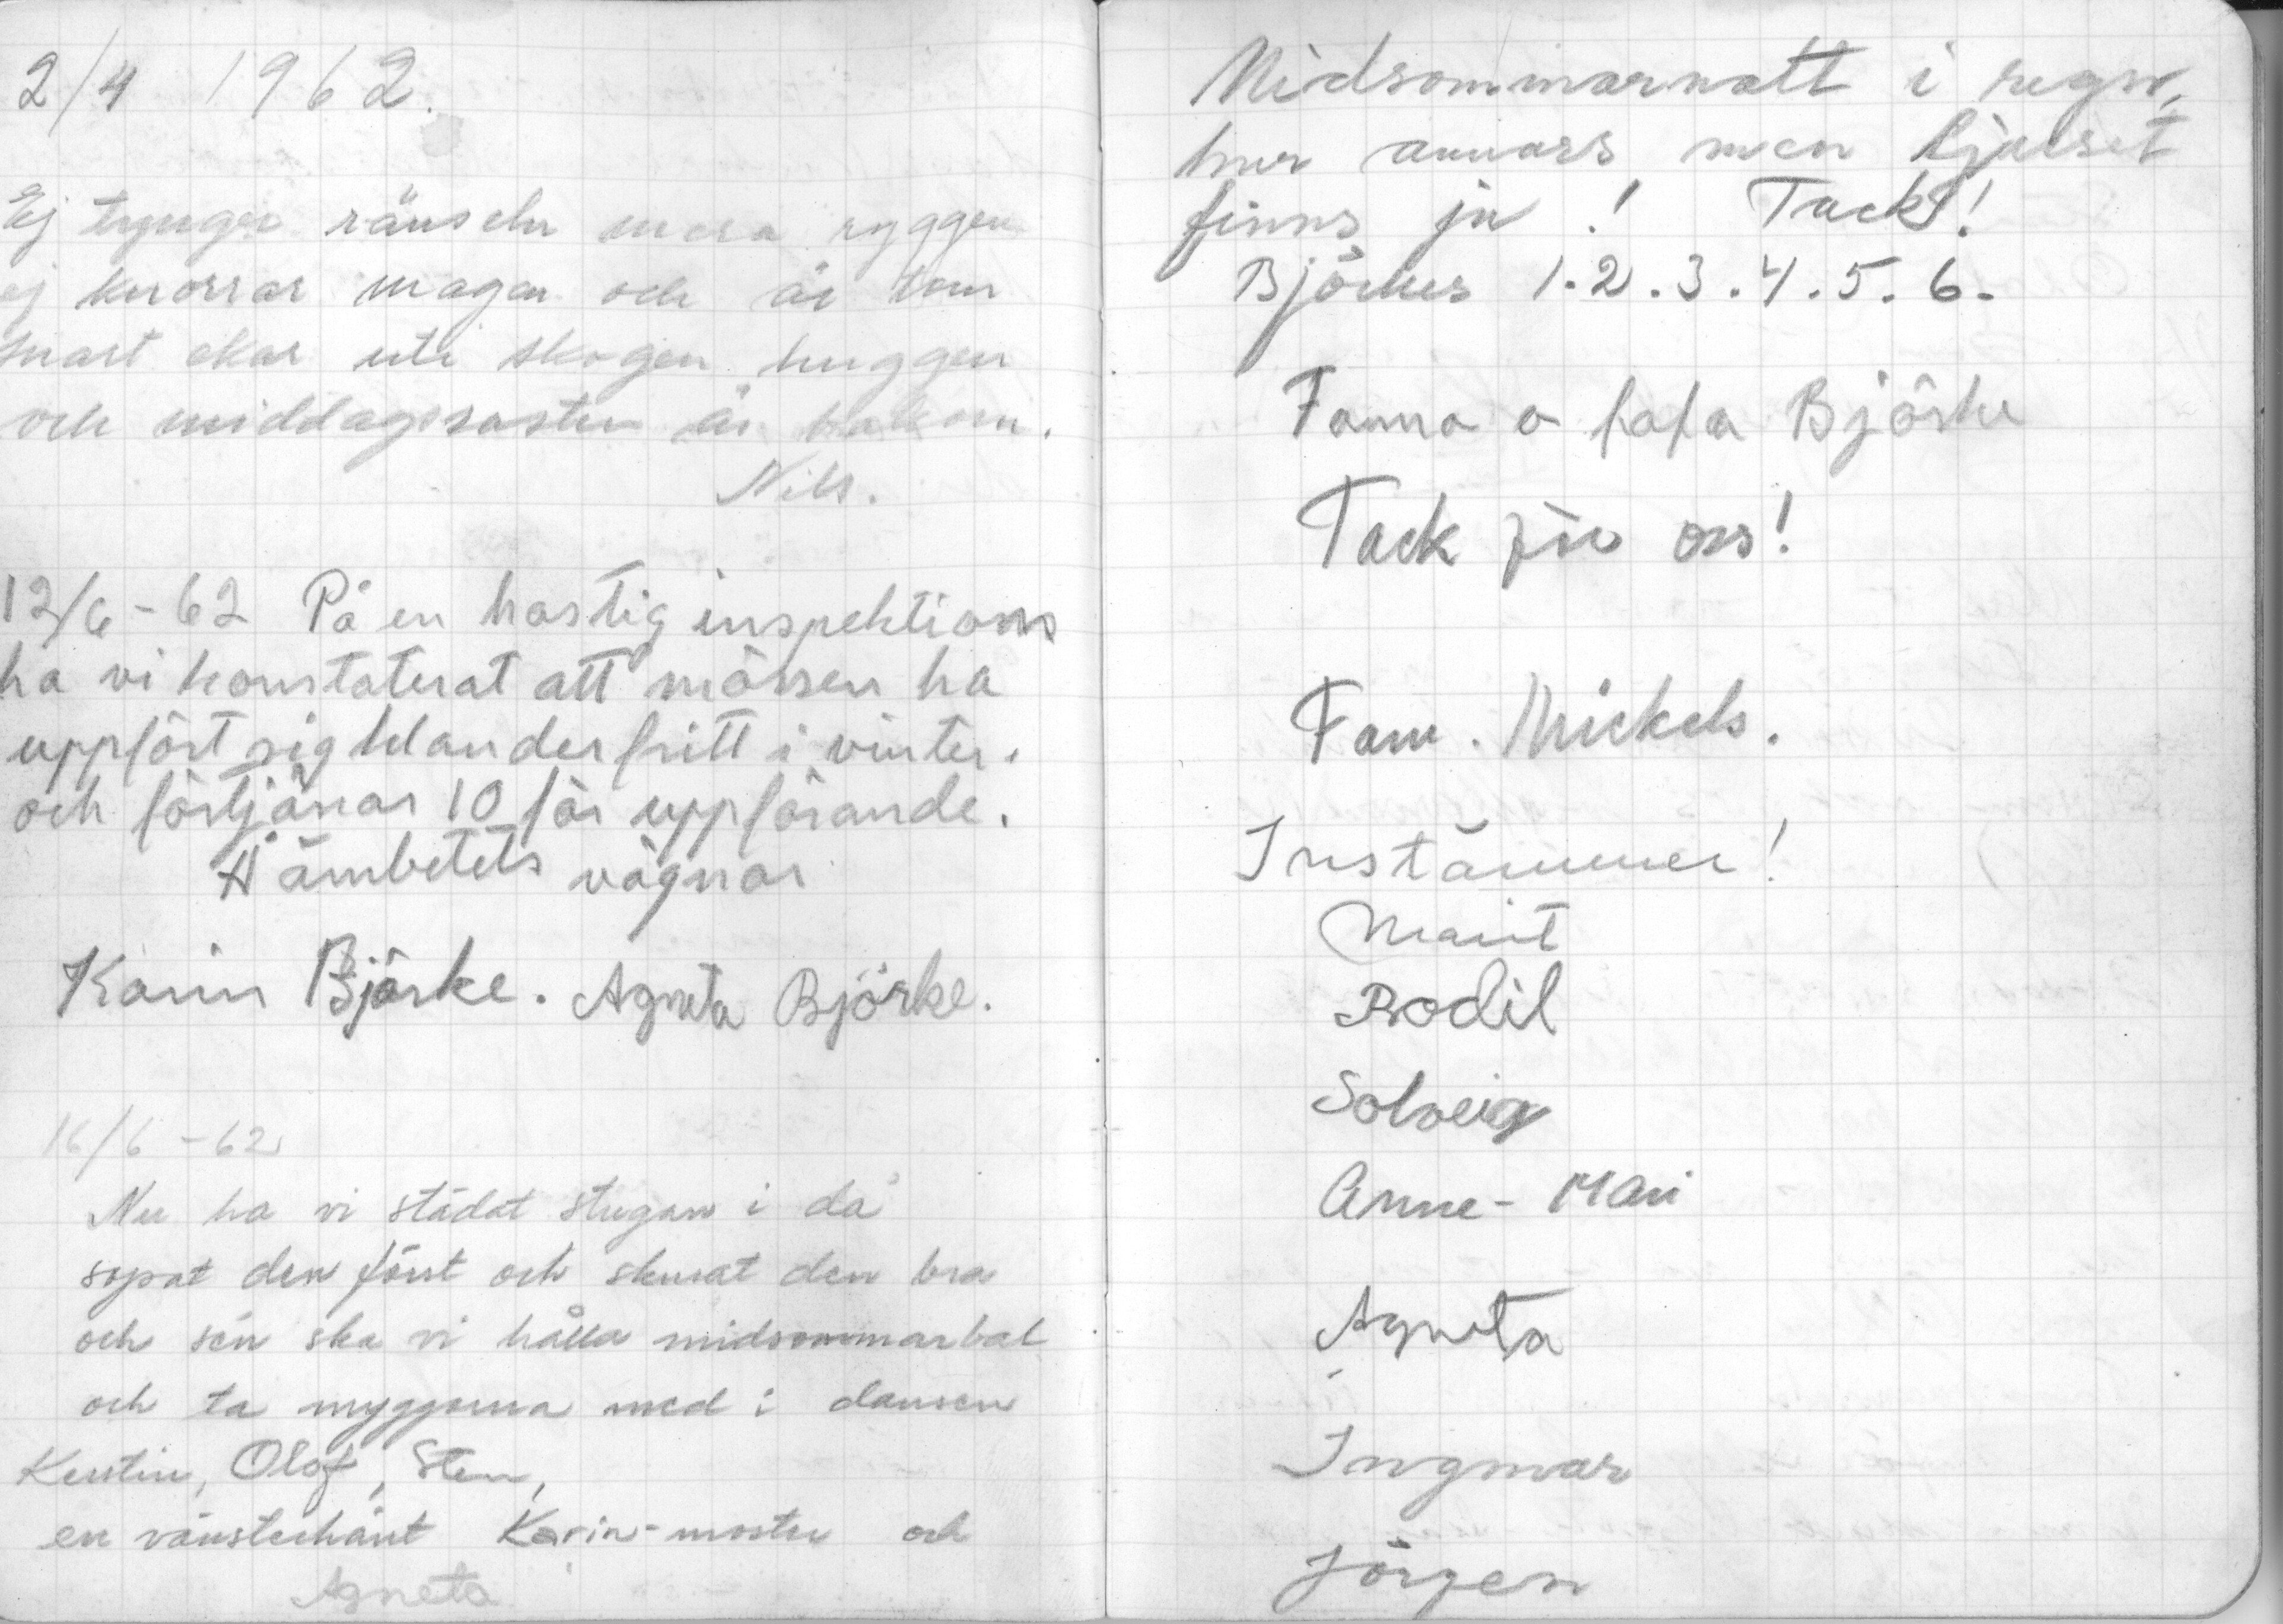 2/4 1962.
Ej tynger ränseln mera ryggen
ej knorrar magen och är tom
snart ekar uti skogen huggen
och middagsrasten är bakom.
Nils.
12/6-62 På en hastig inspektions
ha vi konstaterat att mössen ha
uppfört sig klanderfritt i vinter.
och förtjänar 10 för uppförande.
Å ämbetets vägnar
Karin Björke. Agneta Björke.
16/6-62
Nu ha vi städat stugan i da'
sopat den först och skurat den bra
och sen ska vi hålla midsommarbal
och ta myggorna med i dansen
Kerstin, Olof, Sten,
en vänsterhänt Karin-moster och
Agneta
Midsommarnatt i regn,
hur annars men tjäset
finns ju! Tack!
Björkes 1.2.3.4.5.6.
Famma o fafa Björke
Tack för oss!
Fam. Mickels.
Instämmer!
Marit
Bodil
Solveig
Anne-Mari
Agneta
Ingmar
Jörgen